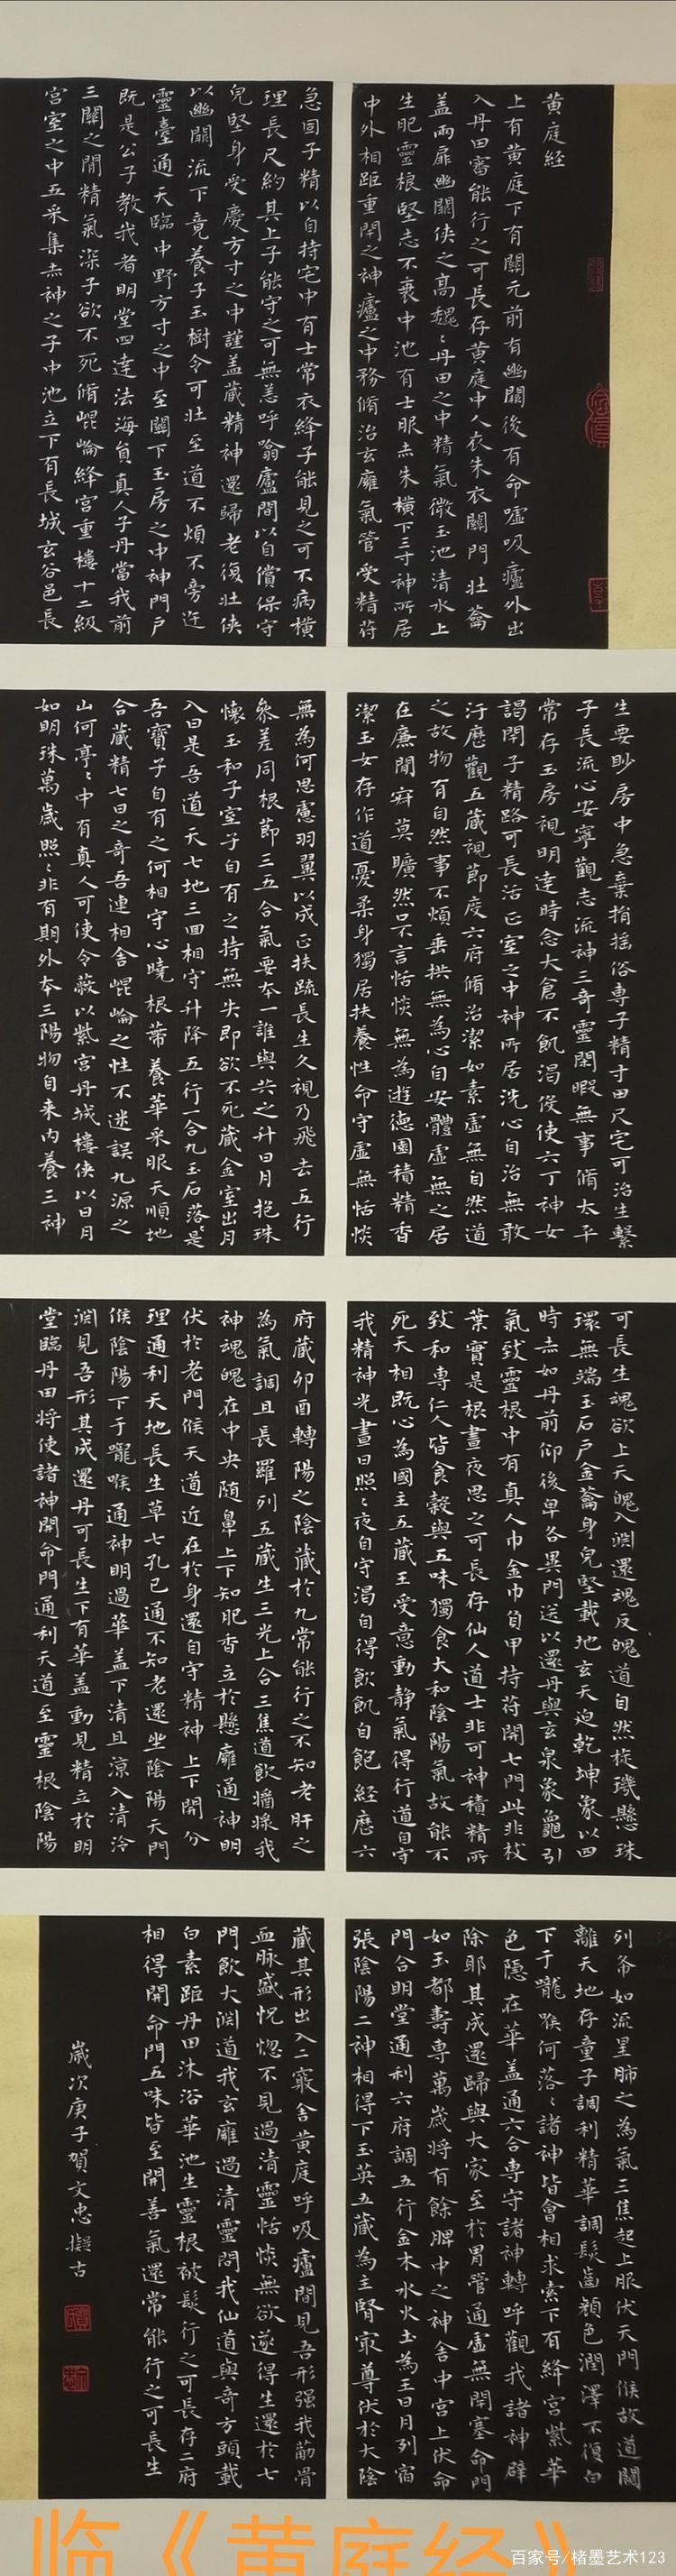 黄庭經
上有黄庭下有關元前有幽關後有命噓吸廬外出
入丹田審能行之可長存黄庭中人衣朱衣關門壯蘥
盖兩扉幽關侠之高巍〻丹田之中精氣微玉池清水上
生肥靈根堅志不衰中池有士服赤朱橫下三寸神所居
中外相距重閉之神廬之中務脩治玄廱氣管受精符
急固子精以自持宅中有士常衣絳子能見之可不病橫
理長尺約其上子能守之可無恙呼噏廬間以自償保守
皃堅身受慶方寸之中謹盖藏精神還歸老復壯侠
以幽關流下竟養子玉樹令可壯至道不煩不旁迕
靈臺通天臨中野方寸之中至關下玉房之中神門戶
既是公子教我者明堂四達法海員真人子丹當我前
三關之閒精氣深子欲不死脩崐崘絳宫重樓十二級
宫室之中五采集赤神之子中池立下有長城玄谷邑長
生要眇房中急棄捐摇俗専子精寸田尺宅可治生繫
子長流心安寧觀志流神三奇靈閑暇無事脩太平
常存玉房視明達時念大倉不飢渴俟使六丁神女
謁閉子精路可長活正室之中神所居洗心自治無敢
汙歷觀五藏視節度六府脩治潔如素虛無自然道
之故物有自然事不煩垂拱無為心自安體虛無之居
在廉閒寂莫曠然口不言恬惔無為遊德園積精香
潔玉女存作道憂柔身獨居扶養性命守虛無恬惔
無為何思慮羽翼以成正扶疏長生久視乃飛去五行
參差同根節三五合氣要本一誰與共之升日月抱珠
懷玉和子室子自有之持無失即欲不死藏金室出月
入日是吾道天七地三回相守升降五行一合九玉石落〻是
吾寶子自有之何相守心曉根蒂養華采服天順地
合藏精七日之奇吾連相舍崐崘之性不迷誤九源之
山何亭〻中有真人可使令蔽以紫宫丹城樓侠以日月
如明珠萬歲照〻非有期外本三陽物自来内養三神
可長生魂欲上天魄入淵還魂反魄道自然旋璣懸珠
環無端玉石戶金蘥身皃堅載地玄天迫乾坤象以四
時赤如丹前仰後卑各異門送以還丹與玄泉象龜引
氣致靈根中有真人巾金巾負甲持符開七門此非枝
葉實是根晝夜思之可長存仙人道士非可神積精所
致和専仁人皆食穀與五味獨食大和陰陽氣故能不
死天相既心為國主五藏王受意動静氣得行道自守
我精神光晝日照〻夜自守渴自得飲飢自飽經歷六
府藏卯酉轉陽之陰藏於九常能行之不知老肝之
為氣調且長羅列五藏生三光上合三焦道飲醬漿我
神魂魄在中央随鼻上下知肥香立於懸廱通神明
伏於老門候天道近在於身還自守精神上下開分
理通利天地長生草七孔已通不知老還坐陰陽天門
候陰陽下于嚨喉通神明過華盖下清且涼入清泠
淵見吾形其成還丹可長生下有華盖動見精立於明
堂臨丹田将使諸神開命門通利天道至靈根陰陽
列布如流星肺之為氣三焦起上服伏天門候故道闚
離天地存童子調利精華調髮齒顏色潤澤不復白
下于嚨喉何落〻諸神皆會相求索下有絳宫紫華
色隱在華盖通六合専守諸神轉呼觀我諸神辟
除耶其成還歸與大家至於胃管通虛無閉塞命門
如玉都壽専萬歲将有餘脾中之神舍中宫上伏命
門合明堂通利六府調五行金木水火土為王日月列宿
張陰陽二神相得下玉英五藏為主腎冣尊伏於大陰
藏其形出入二竅舍黄庭呼吸廬閒見吾形强我筋骨
血脉盛怳惚不見過清靈恬惔無欲遂得生還於七
門飲大淵道我玄廱過清靈問我仙道與奇方頭載
白素距丹田沐浴華池生靈根被髮行之可長存二府
相得開命門五味皆至開善氣還常能行之可長生
歲次庚子賀文忠擬古
临《黄庭经》
百家号/楮墨艺术123